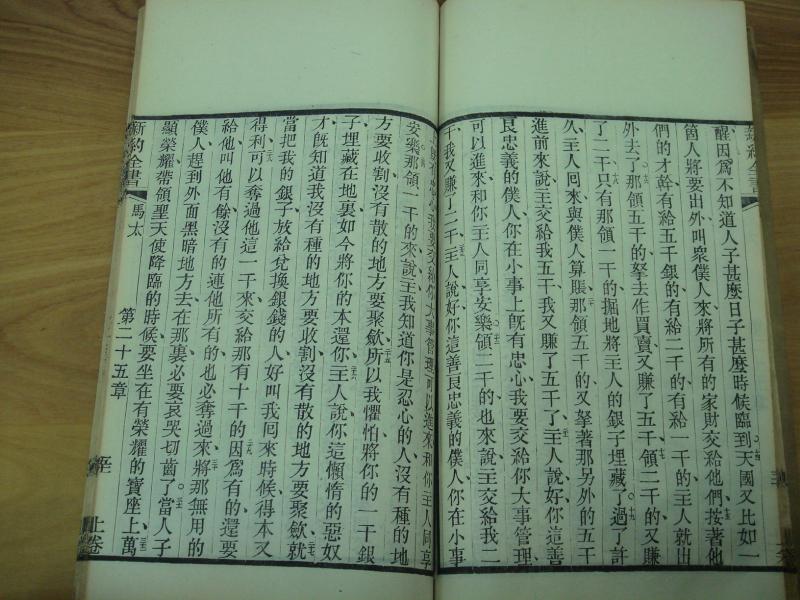 醒因爲不知道人子甚麼日子甚麼時候臨到天國又比如一
箇人將要出外呌衆僕人來將所有的家財交給他們按著他
們的才幹有給五千銀的有給二千的有給一千的主人就出
外去了那領五千的拏去作買賣又賺了五千領二千的又賺
了二千只有那領一千的掘地將主人的銀子埋藏了過了許
久主人回來與僕人算賬那領五千的又拏著那另外的五千
進前來說主交給我五千我又賺了五千了主人說好你這善
良忠義的僕人你在小事上旣有忠心我要交給你大事管理
可以進來和你主人同享安樂領二千的也來說主交給我二
千我又賺了二千主人說好你這善良忠義的僕人你在小事
有忠心我要交給你大事管理可以進來和你主人同享
安樂那領一千的來說主我知道你是忍心的人沒有種的地
方要收割沒有散的地方要聚斂所以我懼怕將你的一千銀
子埋藏在地裏如今將你的本還你主人說你這懶惰的惡奴
才旣知道我沒有種的地方要收割沒有散的地方要聚斂就
當把我的銀子放給兌換銀錢的人好呌我回來時候得本又
得利可以奪過他這一千來交給那有十千的因爲有的還要
給他呌他有餘沒有的連他所有的也必奪過來將那無用的
僕人趕到外面黑暗地方去在那裏必要哀哭切齒了當人子
顯榮耀帶領聖天使降臨的時候要坐在有榮耀的寶座上萬
新約全書 馬太 第二十五章 上卷